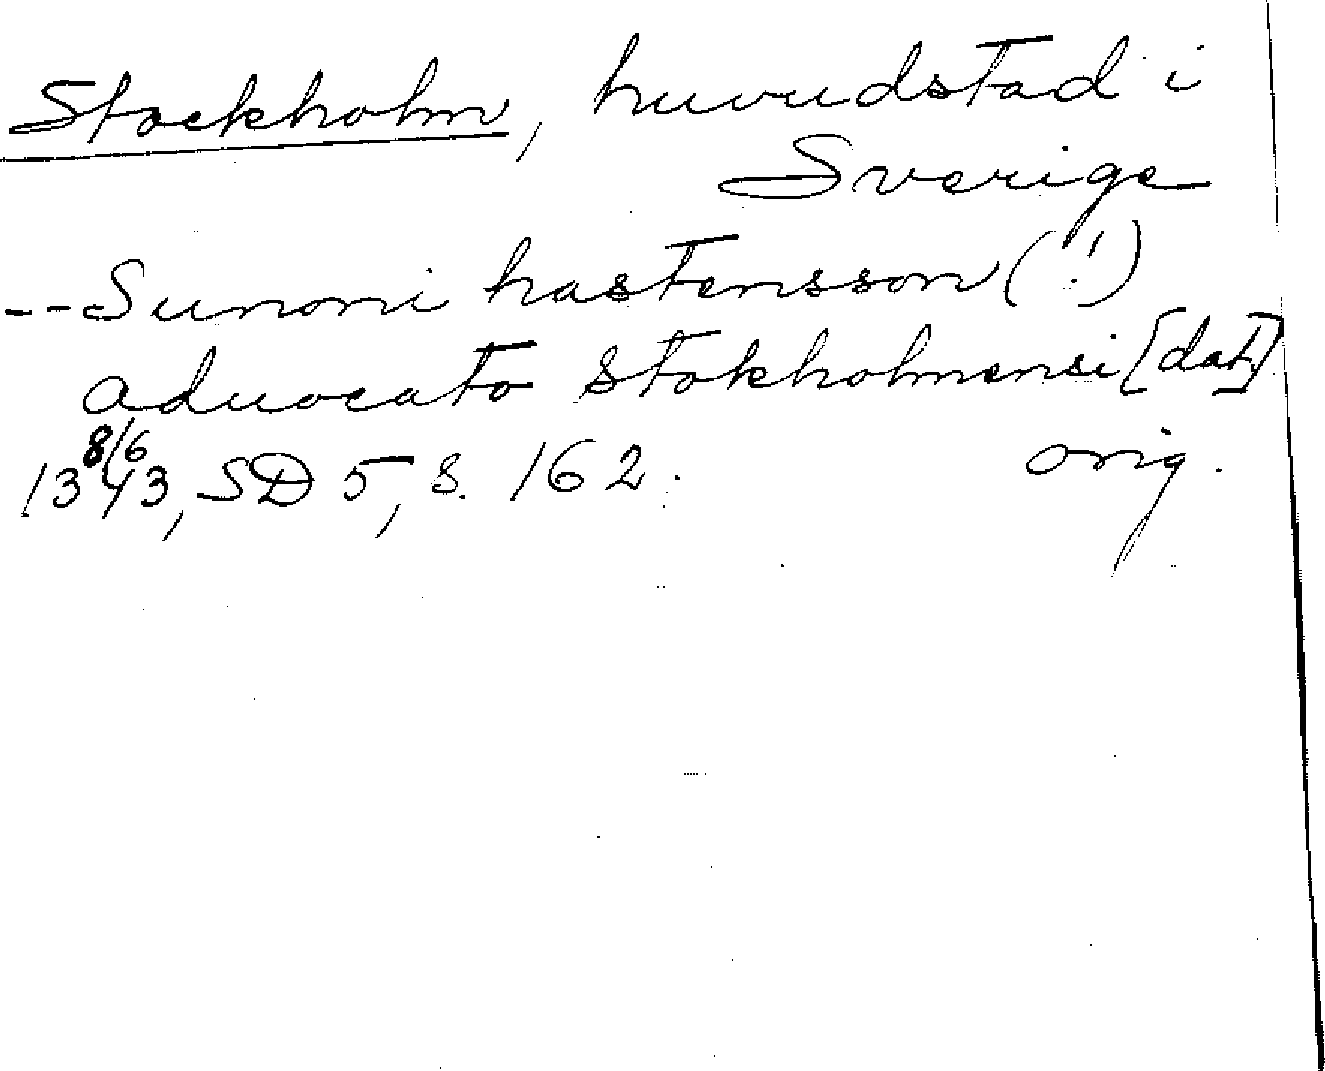 Stockholm, huvudstad i
Sverige
--Sunoni hastensson (!)
advocato stokholmensi [dat]
8/6
1343, SD 5, s. 162. orig.